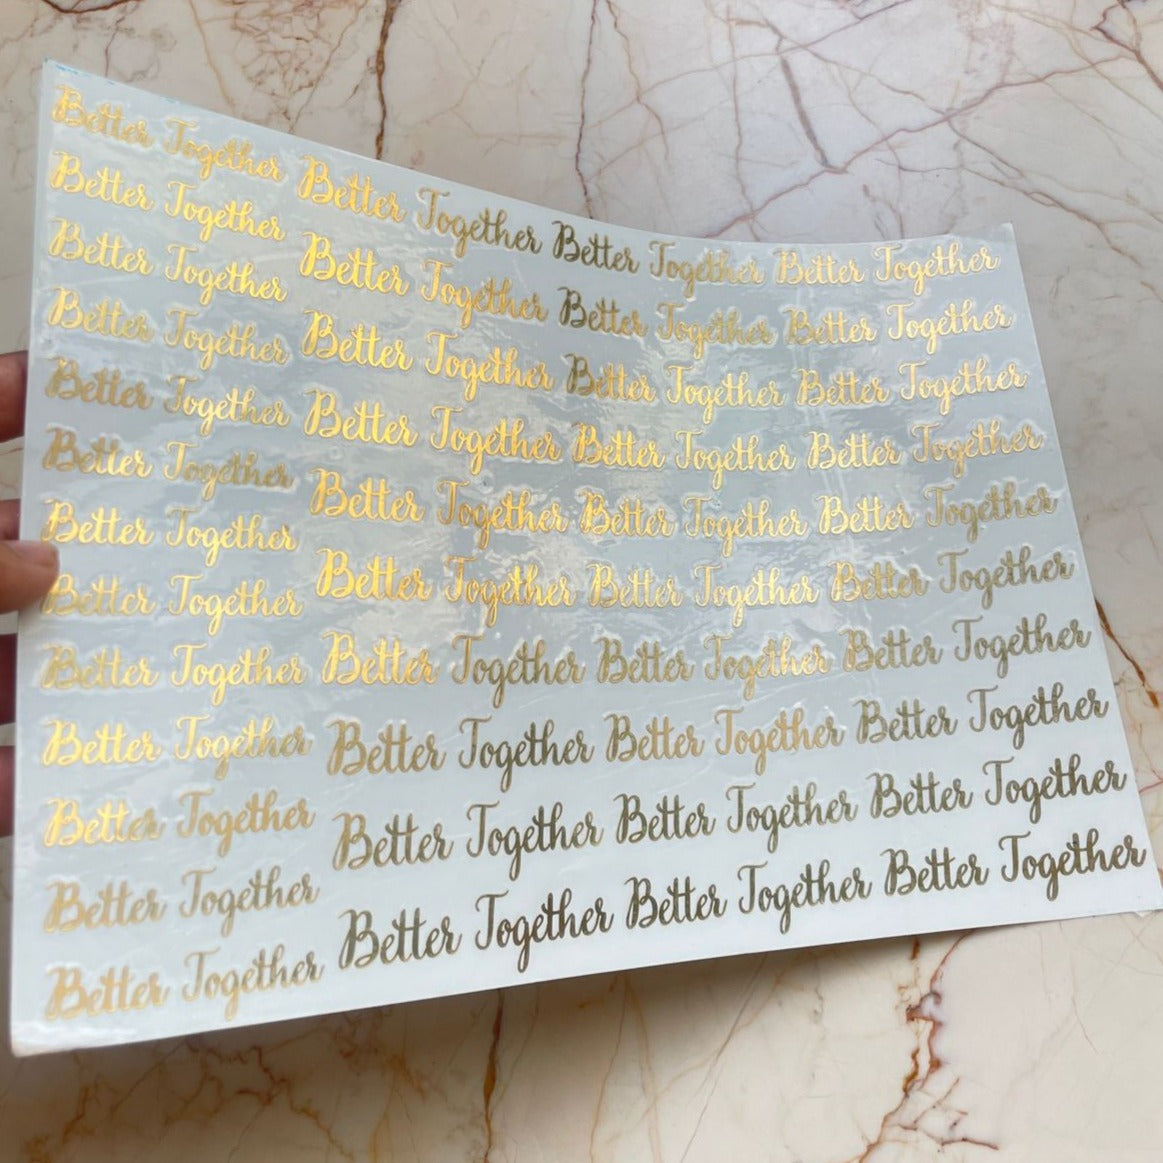 Better Together Better Together Better Together Better Together
Better Together Better Together Better Together Better Together
Better Together Better Together Better Together Better Together
Better Together Better Together Better Together Better Together
Better Together Better Together Better Together Better Together
Better Together Better Together Better Together Better Together
Better Together Better Together Better Together Better Together
Better Together Better Together Better Together Better Together
Better Together Better Together Better Together Better Together
Better Together Better Together Better Together Better Together
Better Together
Better Together
Better Together